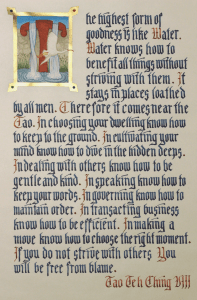 The highest form of
goodness is like Water.
Water knows how to
benefit all things without
striving with them. It
stays in places loathed
by all men. Therefore it comes near the
Tao. In choosing your dwelling know how
to keep to the ground. In cultivating your
mind know how to dive in the hidden deeps.
In dealing with others know how to be
gentle and kind. In speaking know how to
keep your words. In governing know how to
maintain order. In transacting business
know how to be efficient. In making a
move know how to choose the right moment.
If you do not strive with others You
will be free from blame.
Tao Teh Ching VIII